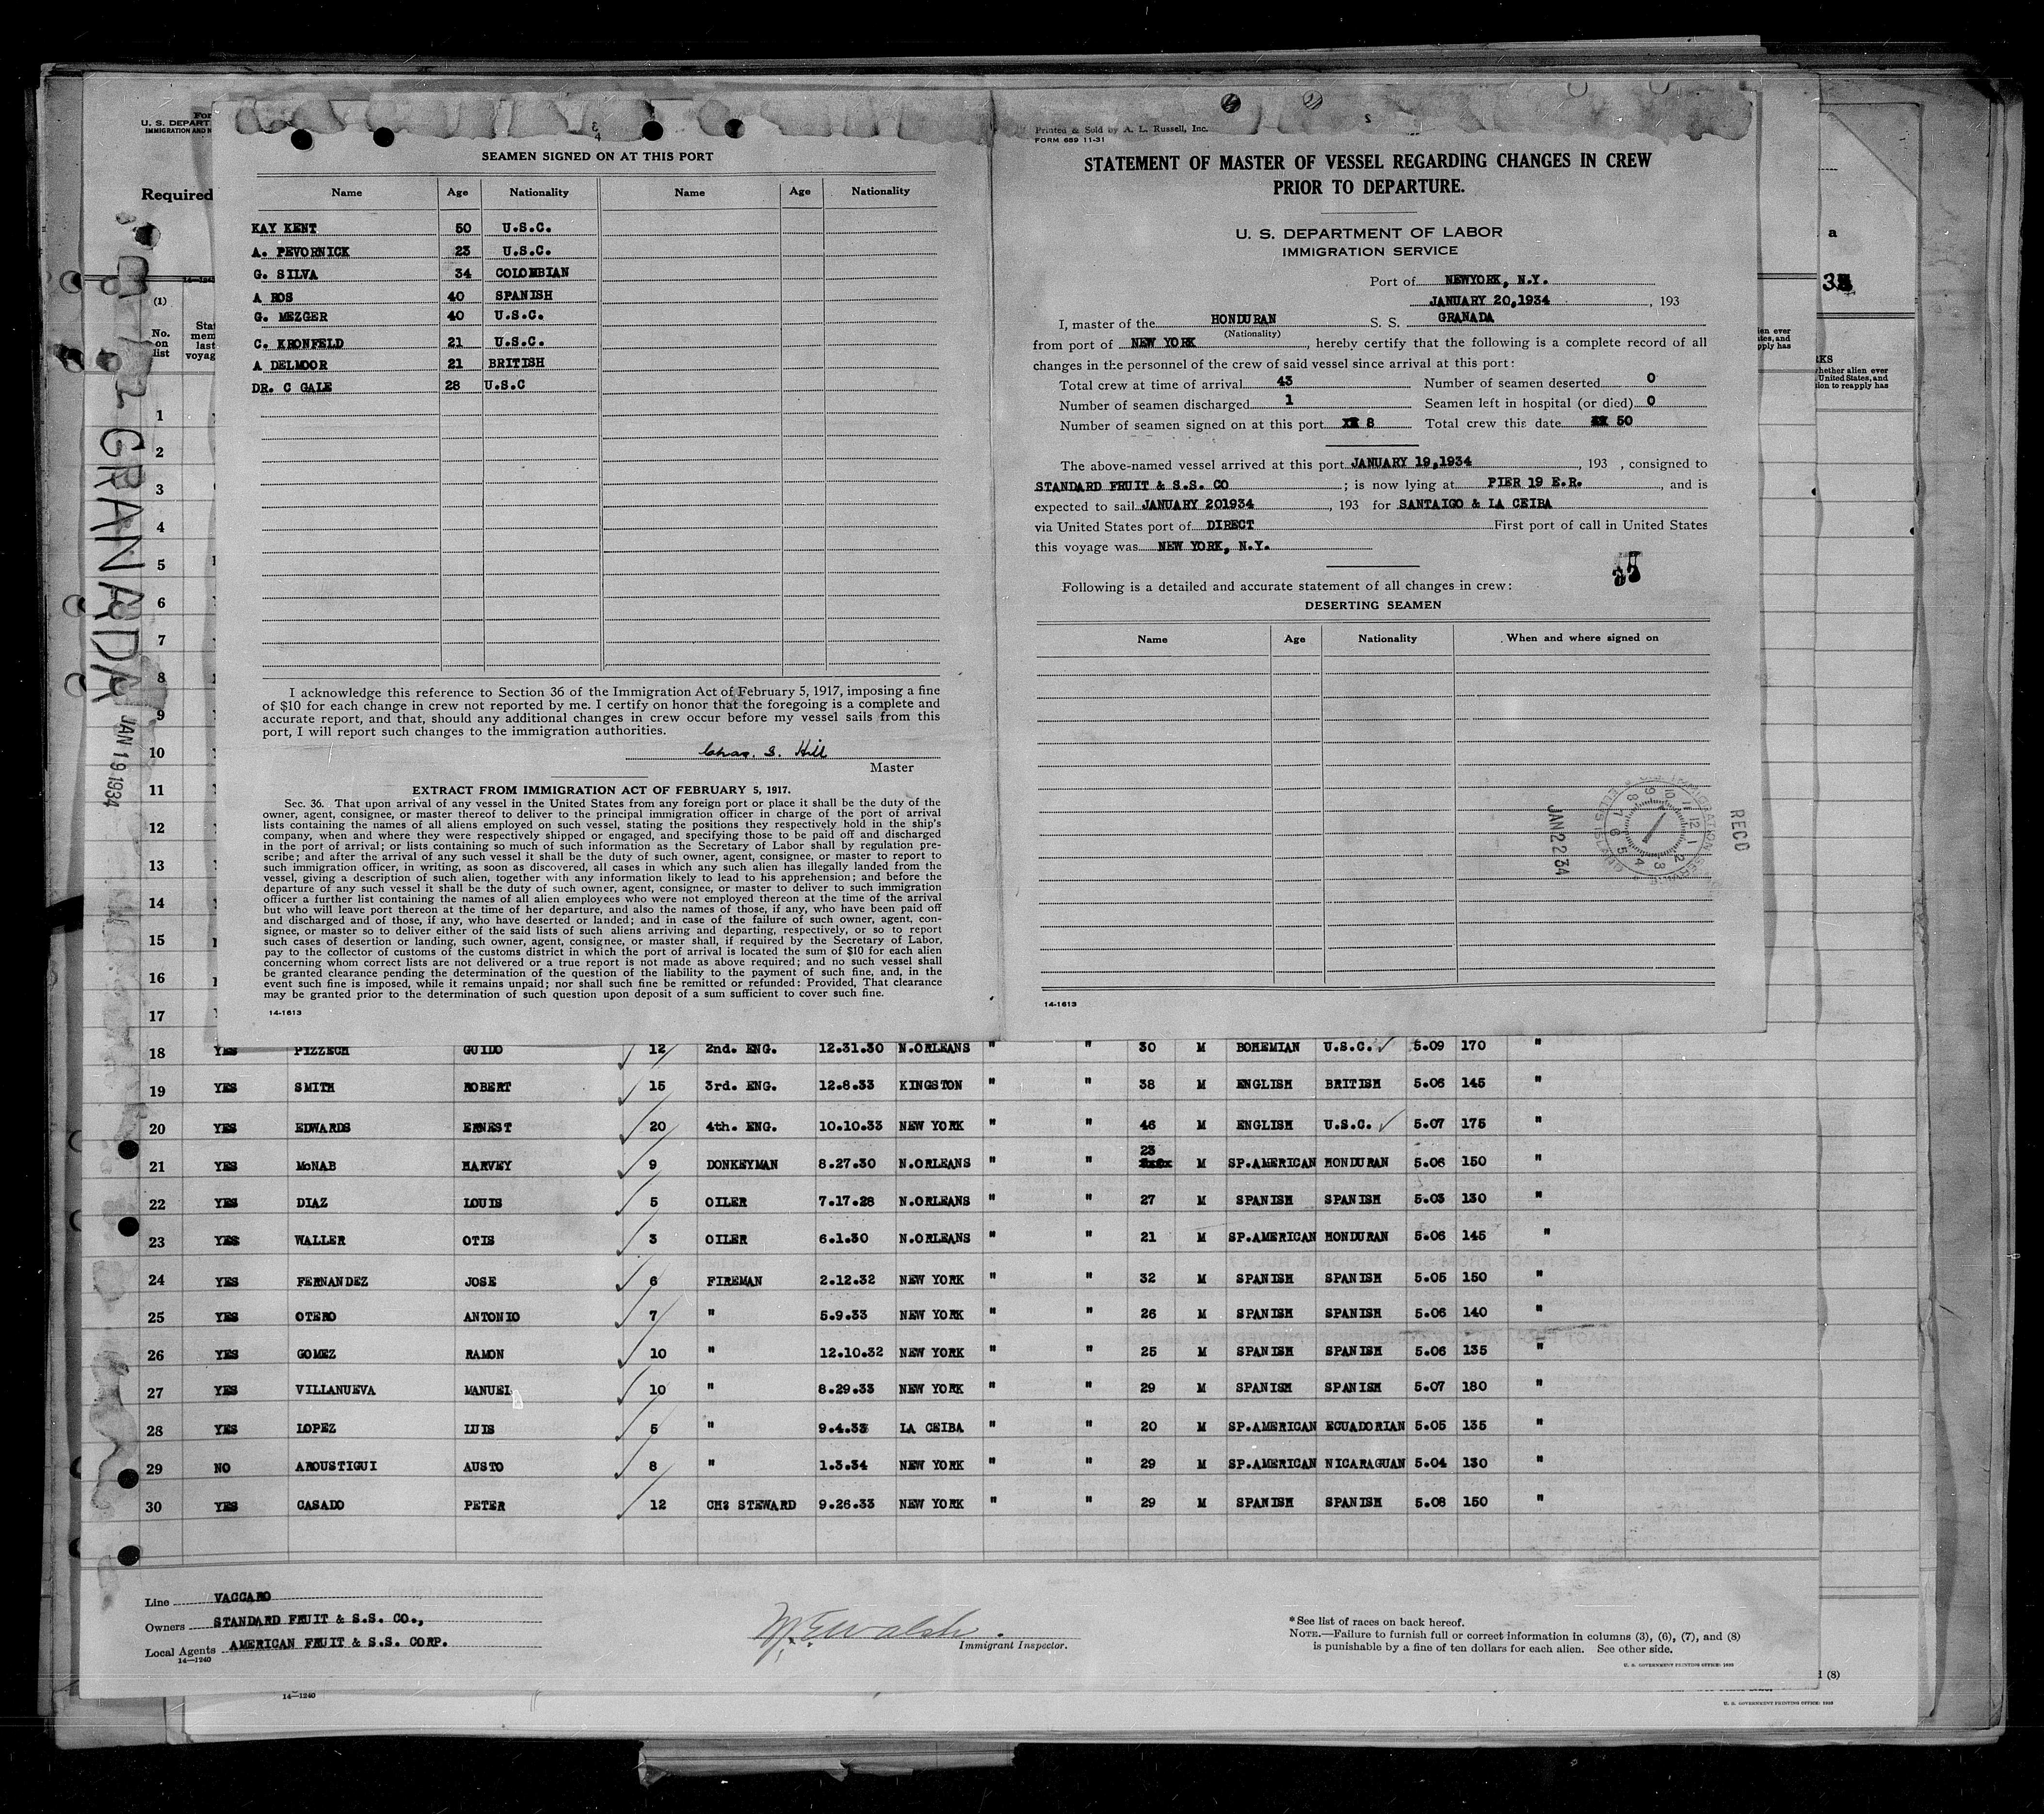 SEAMEN SIGNED ON AT THIS PORT
Name Age Nationality Name Age Nationality
KAY KENT 50 U.S.C.
A. PEVORNICK 23 U.S.C.
G. SILVA 34 COLOMBIAN
A ROS 40 SPANISH
G. MEZGER 40 U.S.C.
C. KRONFELD 21 U.S.C.
A DELMOOR 21 BRITISH
DR. C GALE 28 U.S.C
I acknowledge this reference to Section 36 of the Immigration Act of February 5, 1917, imposing a fine
of $10 for each change in crew not reported by me. I certify on honor that the foregoing is a complete and
accurate report, and that, should any additional changes in crew occur before my vessel sails from this
port, I will report such changes to the immigration authorities.
Chas. S. Hill
Master
EXTRACT FROM IMMIGRATION ACT OF FEBRUARY 5, 1917.
Sec. 36. That upon arrival of any vessel in the United States from any foreign port or place it shall be the duty of the
owner, agent, consignee, or master thereof to deliver to the principal immigration officer in charge of the port of arrival
lists containing the names of all aliens employed on such vessel, stating the positions they respectively hold in the ship's
company, when and where they were respectively shipped or engaged, and specifying those to be paid off and discharged
in the port of arrival; or lists containing so much of such information as the Secretary of Labor shall by regulation pre-
scribe; and after the arrival of any such vessel it shall be the duty of such owner, agent, consignee, or master to report to
such immigration officer, in writing, as soon as discovered, all cases in which any such alien has illegally landed from the
vessel, giving a description of such alien, together with any information likely to lead to his apprehension; and before the
departure of any such vessel it shall be the duty of such owner, agent, consignee, or master to deliver to such immigration
officer a further list containing the names of all alien employees who were not employed thereon at the time of the arrival
but who will leave port thereon at the time of her departure, and also the names of those, if any, who have been paid off
and discharged and of those, if any, who have deserted or landed; and in case of the failure of such owner, agent, con-
signee, or master so to deliver either of the said lists of such aliens arriving and departing, respectively, or so to report
such cases of desertion or landing, such owner, agent, consignee, or master shall, if required by the Secretary of Labor,
pay to the collector of customs of the customs district in which the port of arrival is located the sum of $10 for each alien
concerning whom correct lists are not delivered or a true report is not made as above required; and no such vessel shall
be granted clearance pending the determination of the question of the liability to the payment of such fine, and, in the
event such fine is imposed, while it remains unpaid; nor shall such fine be remitted or refunded: Provided, That clearance
may be granted prior to the determination of such question upon deposit of a sum sufficient to cover such fine.
14-1613
Printed & Sold by A. L. Russell, Inc.
FORM 689 11-31
STATEMENT OF MASTER OF VESSEL REGARDING CHANGES IN CREW
PRIOR TO DEPARTURE.
U. S. DEPARTMENT OF LABOR
IMMIGRATION SERVICE
Port of NEWYORK, N.Y.
JANUARY 20,1934 , 193
I, master of the HONDURAN S. S. GRANADA
(Nationality)
from port of NEW YORK , hereby certify that the following is a complete record of all
changes in the personnel of the crew of said vessel since arrival at this port:
Total crew at time of arrival 43 Number of seamen deserted 0
Number of seamen discharged 1 Seamen left in hospital (or died) 0
Number of seamen signed on at this port 8 Total crew this date 50
The above-named vessel arrived at this port JANUARY 19,1934 , 193 , consigned to
STANDARD FRUIT & S.S. CO ; is now lying at PIER 19 E.R. , and is
expected to sail JANUARY 201934 , 193 for SANTAIGO & LA CEIBA
via United States port of DIRECT First port of call in United States
this voyage was NEW YORK, N.Y.
Following is a detailed and accurate statement of all changes in crew:
DESERTING SEAMEN
Name Age Nationality When and where signed on
JAN 22 34
RECD
14-1613
U. S. DEPART
IMMIGRATION AND N
Required
GRANADA
JAN 19 1934
(1)
No.
on
list
1
2
3
4
5
6
7
8
9
10
11
12
13
14
15
16
17
18 YES PIZZECH GUIDO 12 2nd. ENG. 12.31.30 N.ORLEANS " " 30 M BOHEMIAN U.S.C. 5.09 170 "
19 YES SMITH ROBERT 15 3rd. ENG. 12.8.33 KINGSTON " " 38 M ENGLISH BRITISH 5.06 145 "
20 YES EDWARDS ERNEST 20 4th. ENG. 10.10.33 NEW YORK " " 46 M ENGLISH U.S.C. 5.07 175 "
21 YES McNAB HARVEY 9 DONKEYMAN 8.27.30 N.ORLEANS " " 23 M SP.AMERICAN HONDURAN 5.06 150 "
22 YES DIAZ LOUIS 5 OILER 7.17.28 N.ORLEANS " " 27 M SPANISH SPANISH 5.03 130 "
23 YES WALLER OTIS 3 OILER 6.1.30 N.ORLEANS " " 21 M SP.AMERICAN HONDURAN 5.06 145 "
24 YES FERNANDEZ JOSE 6 FIREMAN 2.12.32 NEW YORK " " 32 M SPANISH SPANISH 5.05 150 "
25 YES OTERO ANTONIO 7 " 5.9.33 NEW YORK " " 26 M SPANISH SPANISH 5.06 140 "
26 YES GOMEZ RAMON 10 " 12.10.32 NEW YORK " " 25 M SPANISH SPANISH 5.06 135 "
27 YES VILLANUEVA MANUEL 10 " 8.29.33 NEW YORK " " 29 M SPANISH SPANISH 5.07 180 "
28 YES LOPEZ LUIS 5 " 9.4.33 LA CEIBA " " 20 M SP.AMERICAN ECUADORIAN 5.05 135 "
29 NO AROUSTIGUI AUSTO 8 " 1.3.34 NEW YORK " " 29 M SP.AMERICAN NICARAGUAN 5.04 130 "
30 YES CASADO PETER 12 CH: STEWARD 9.26.33 NEW YORK " " 29 M SPANISH SPANISH 5.08 150 "
Line VACCARO
Owners STANDARD FRUIT & S.S. CO.,
Local Agents AMERICAN FRUIT & S.S. CORP.
14—1240
Walsh
Immigrant Inspector.
*See list of races on back hereof.
NOTE.—Failure to furnish full or correct information in columns (3), (6), (7), and (8)
is punishable by a fine of ten dollars for each alien. See other side.
U. S. GOVERNMENT PRINTING OFFICE: 1933
14—1240
U. S. GOVERNMENT PRINTING OFFICE: 1933